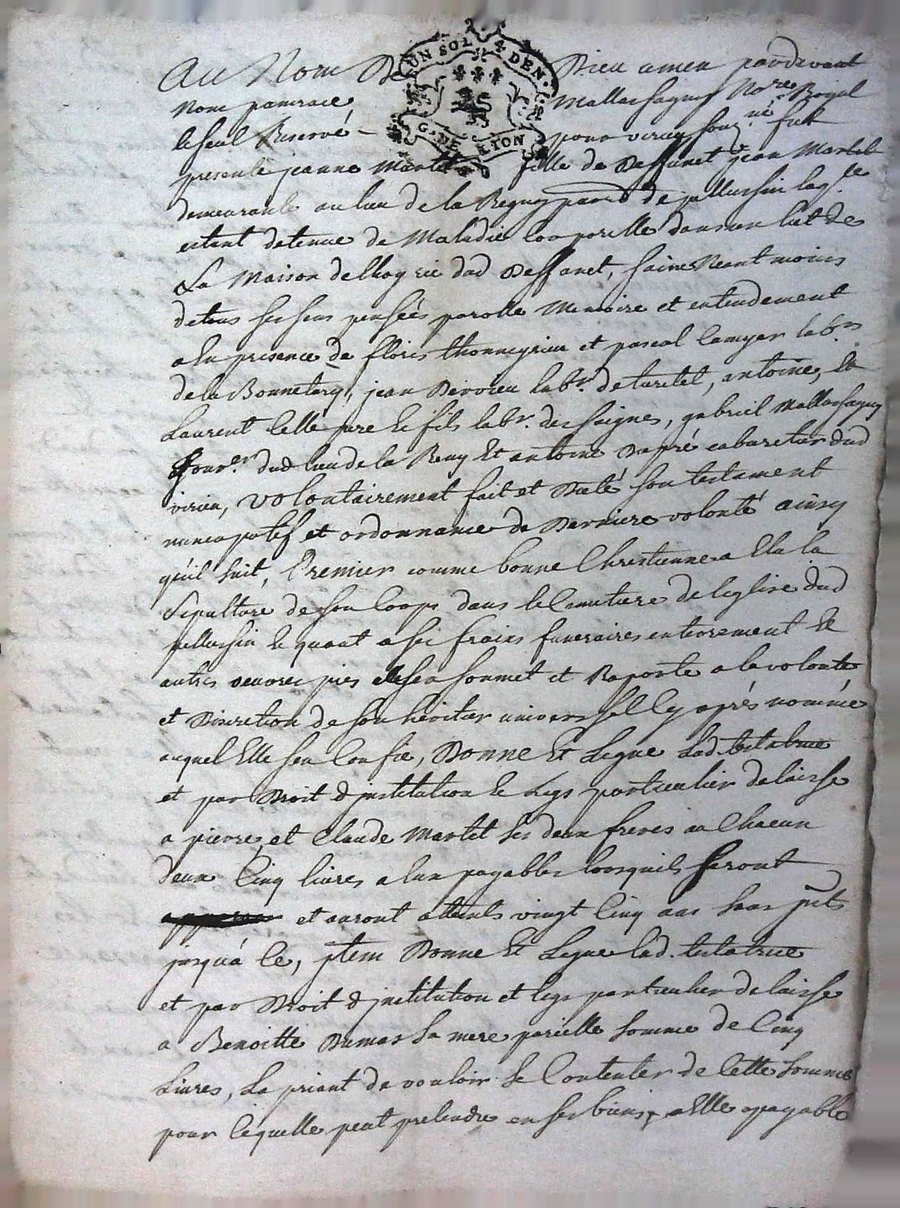 Au Nom De Dieu amen pardevant
UN SOL 4 DEN.
G. DE LYON
Nom Mallassagny No.re Royal
le seul Reservé pour virieu soug.né fut
presente jeanne Martel fille de Deffunct jean Martel
demeurante au lieu de la Regny par.se de pellussin laq.le
estant detenue de Maladie Corporelle dans un lict de
La Maison de dud Deffanct, saine Neant moins
de tous ses sens pensées parolle Memoire et entendement
a la presence de floris thonneyrieu et pascal lab.rs
de la jean Dervieu lab.r de antoine, et
Laurent Celle pere le fils lab.r des saignes, gabriel Mallassagny
dud lieu de la Reny Et antoine Dupré cabaretier dud
virieu, volontairement fait et Dicté son testament
nuncupatif et ordonnance de Derniere volonté ainsy
quil suit, Premier comme bonne Chrestienne a Elu la
Sepulture de son Corps dans le Cimetiere de leglise dud
pellussin Et quant a ses fraix funeraires enterrement Et
autres oeuvres pies Elle sen soumet et Raporte a la volonté
et Discretion de son heritier universel Cy après nommé
auquel Elle sen Confie, Donne Et Legue Lad. testatrice
et par Droit d'jnstitution et Legs particulier delaisse
a pierre, et Claude Martel ses deux freres a Chacun
deux Cinq livres a eux payables lorsquils seront
et auront attaints vingt Cinq ans sans jnts
jusqu'a ce, jtem Donne Et Legue lad. testatrice
et par Droit d'jnstitution et legs particulier delaisse
a Benoitte Dumas sa mere parielle somme de Cinq
Livres, La priant de vouloir se Contenter de Cette somme
pour lequelle peut pretendre en ses biens, a Elle payable